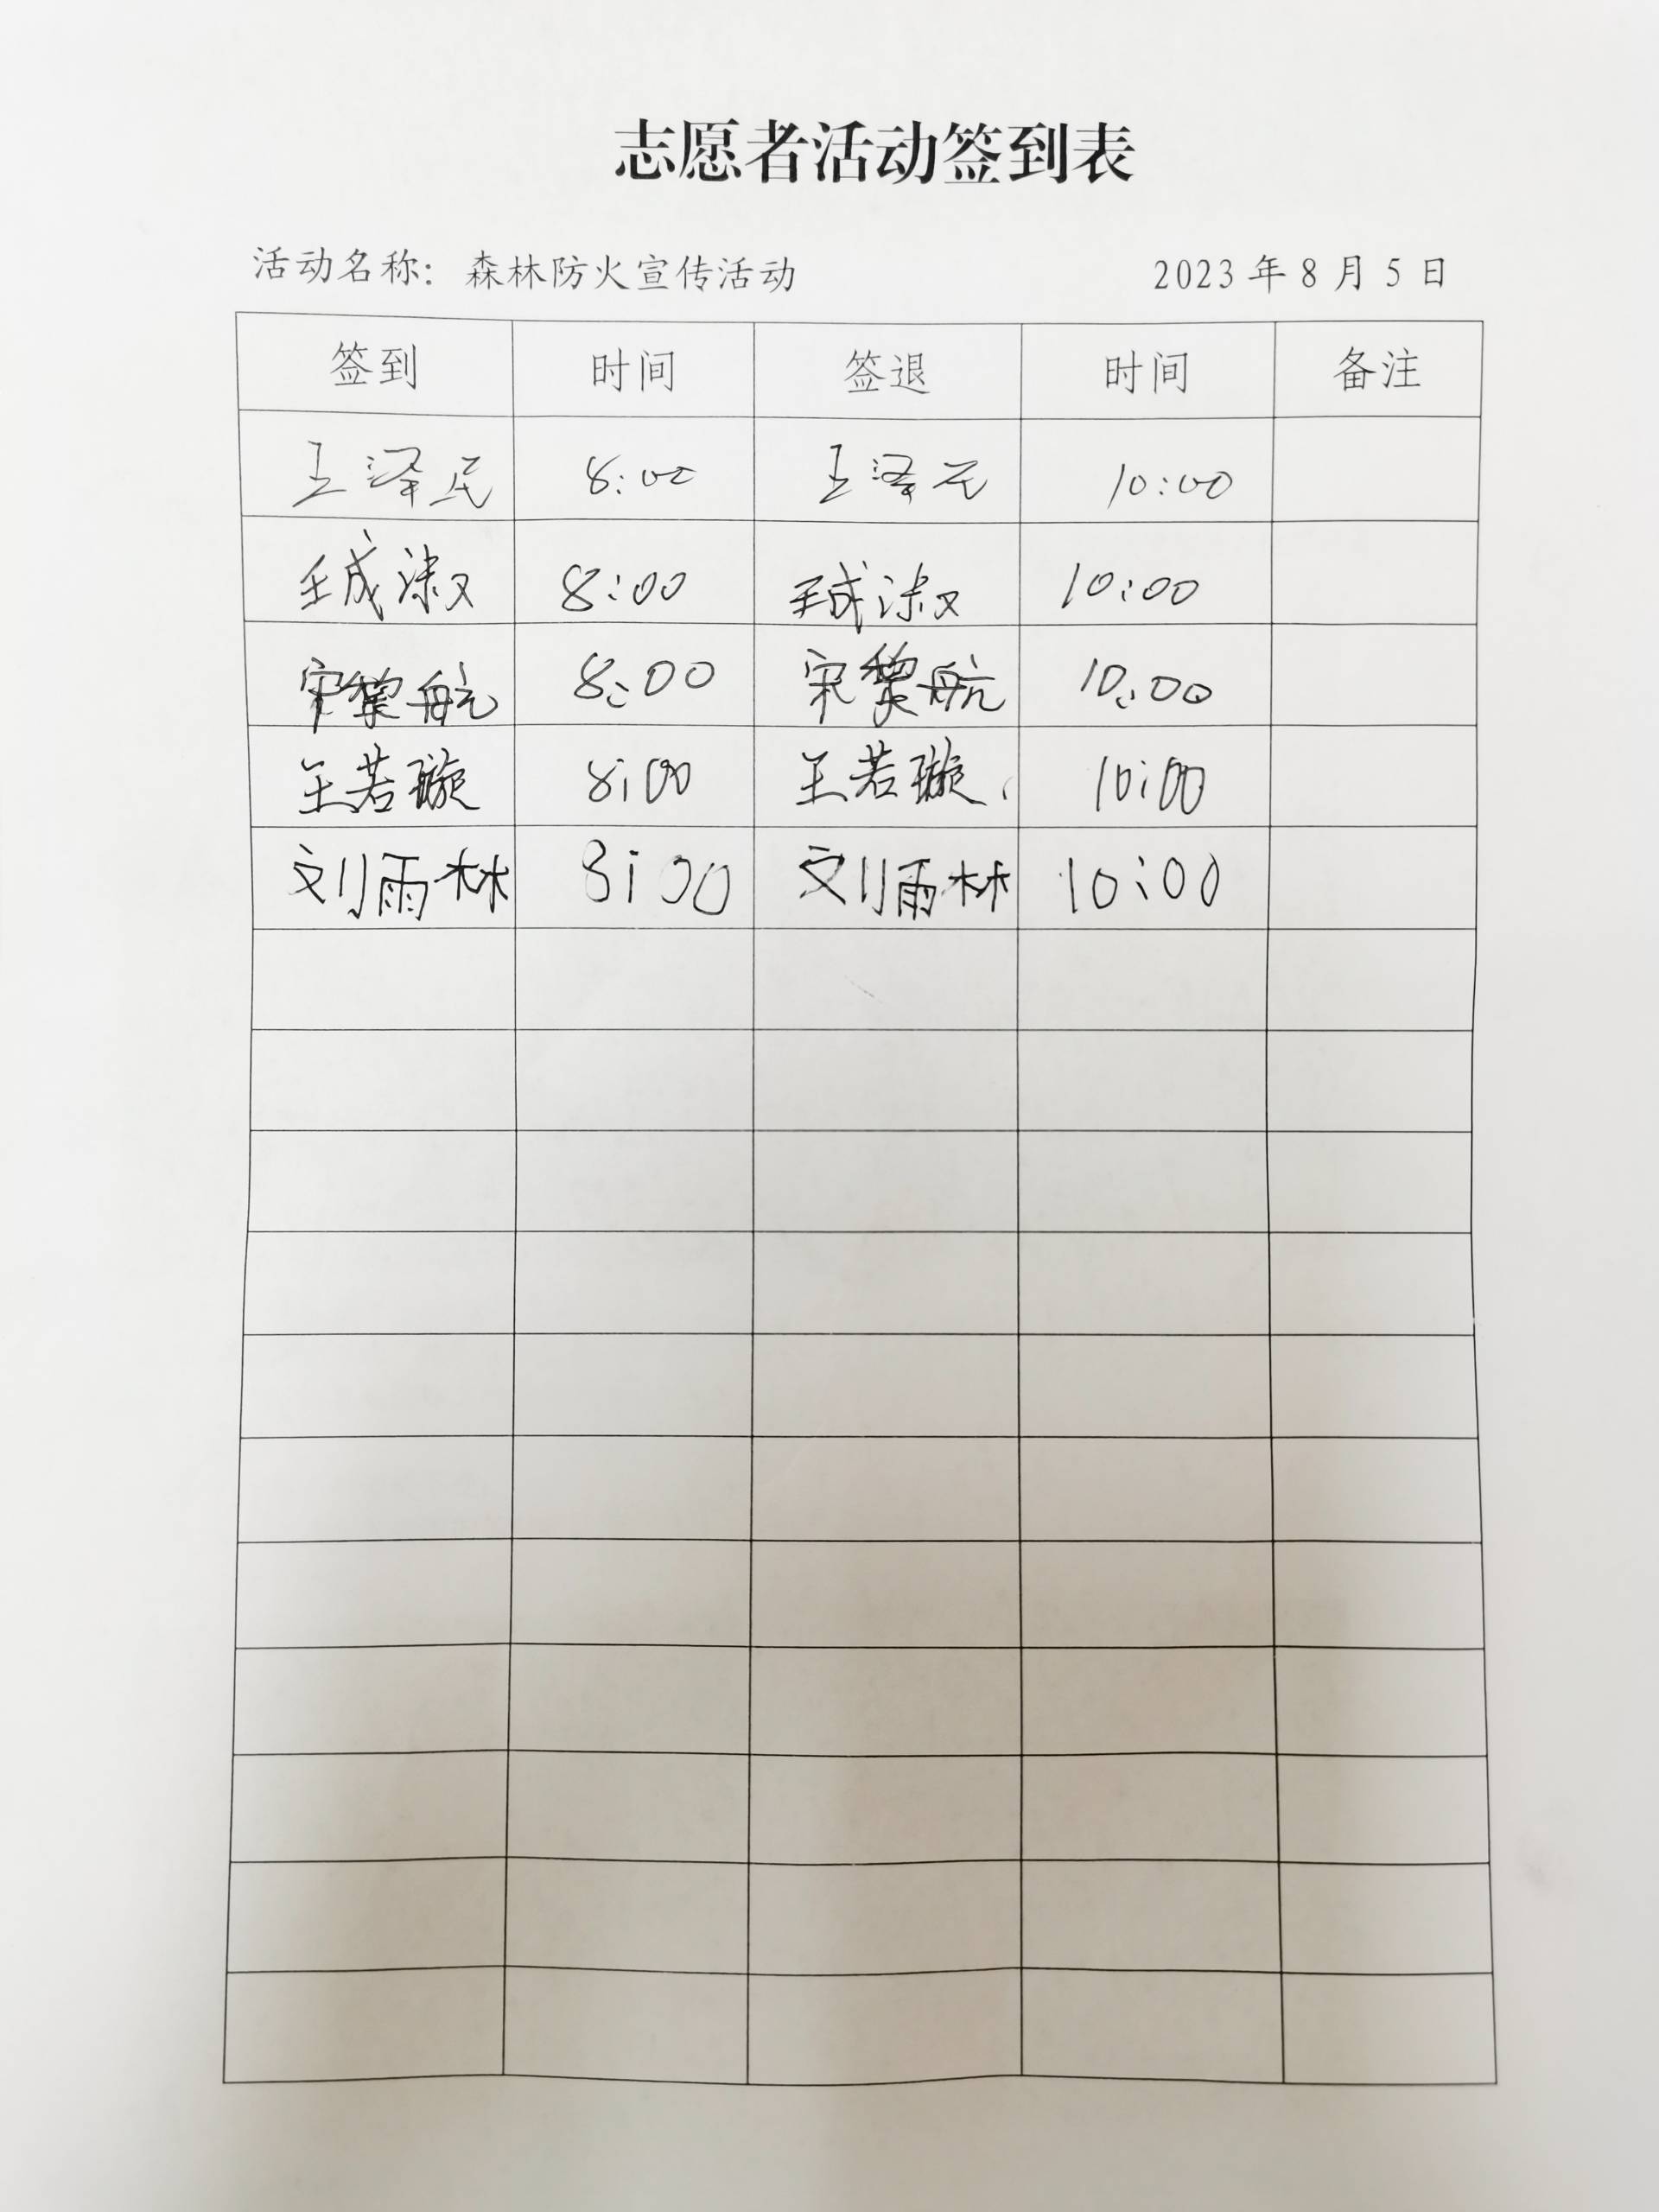 志愿者活动签到表
活动名称：森林防火宣传活动 2023年8月5日
签到 时间 签退 时间 备注
王泽民 8:00 王泽民 10:00
王成淑 8:00 王成淑 10:00
宋黎航 8:00 宋黎航 10:00
王若璇 8:00 王若璇 10:00
刘雨林 8:00 刘雨林 10:00